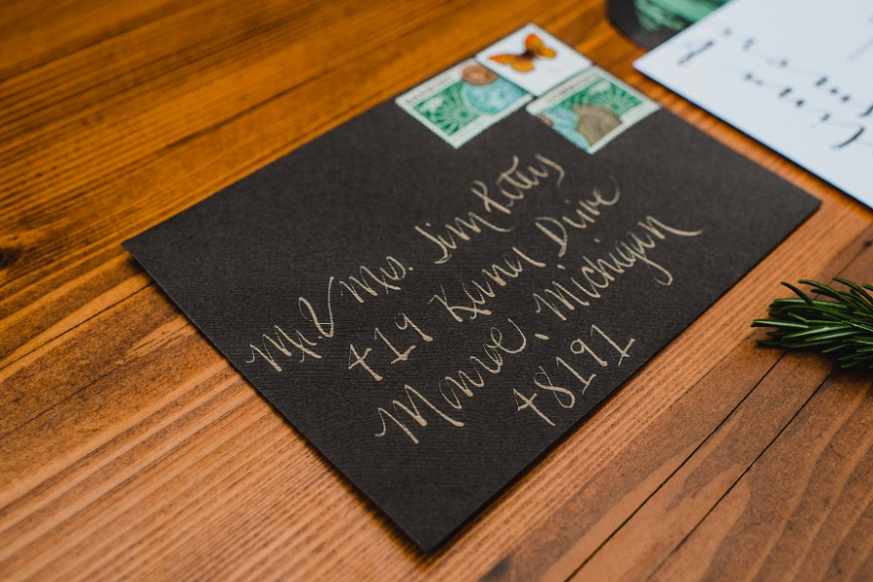 Mr & Mrs. Jim Petty
419 Karul Drive
Monroe, Michigan
48191